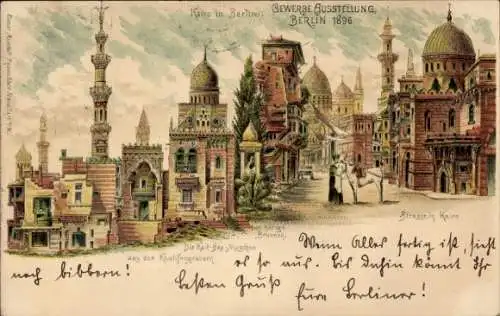 Kairo in Berlin:
GEWERBE AUSSTELLUNG,
BERLIN 1896
Die Kait-Bey Moschee
aus den Khalifengräbern
Brunnen
Strasse in Kairo
Wenn Alles fertig ist, sieht
es so aus. Bis dahin könnt Ihr
noch bibbern!
Besten Gruß
Eure Berliner!